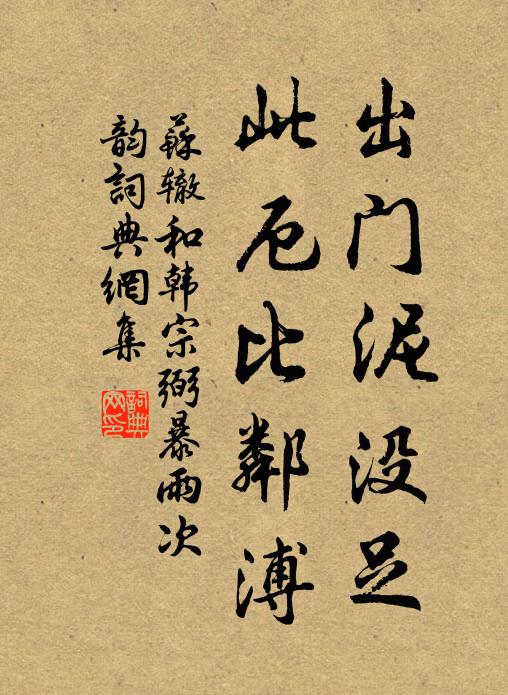 出门泥没足
此厄比鄰溥
蘇辙和韩宗弼暴雨次
韵詞典網集
詞典网印